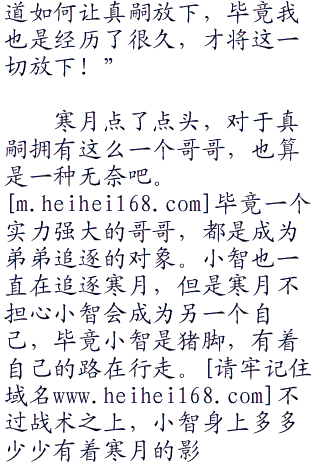 道如何让真嗣放下，毕竟我
也是经历了很久，才将这一
切放下！”
寒月点了点头，对于真
嗣拥有这么一个哥哥，也算
是一种无奈吧。
[m.heihei168.com]毕竟一个
实力强大的哥哥，都是成为
弟弟追逐的对象。小智也一
直在追逐寒月，但是寒月不
担心小智会成为另一个自
己，毕竟小智是猪脚，有着
自己的路在行走。[请牢记住
域名www.heihei168.com]不
过战术之上，小智身上多多
少少有着寒月的影